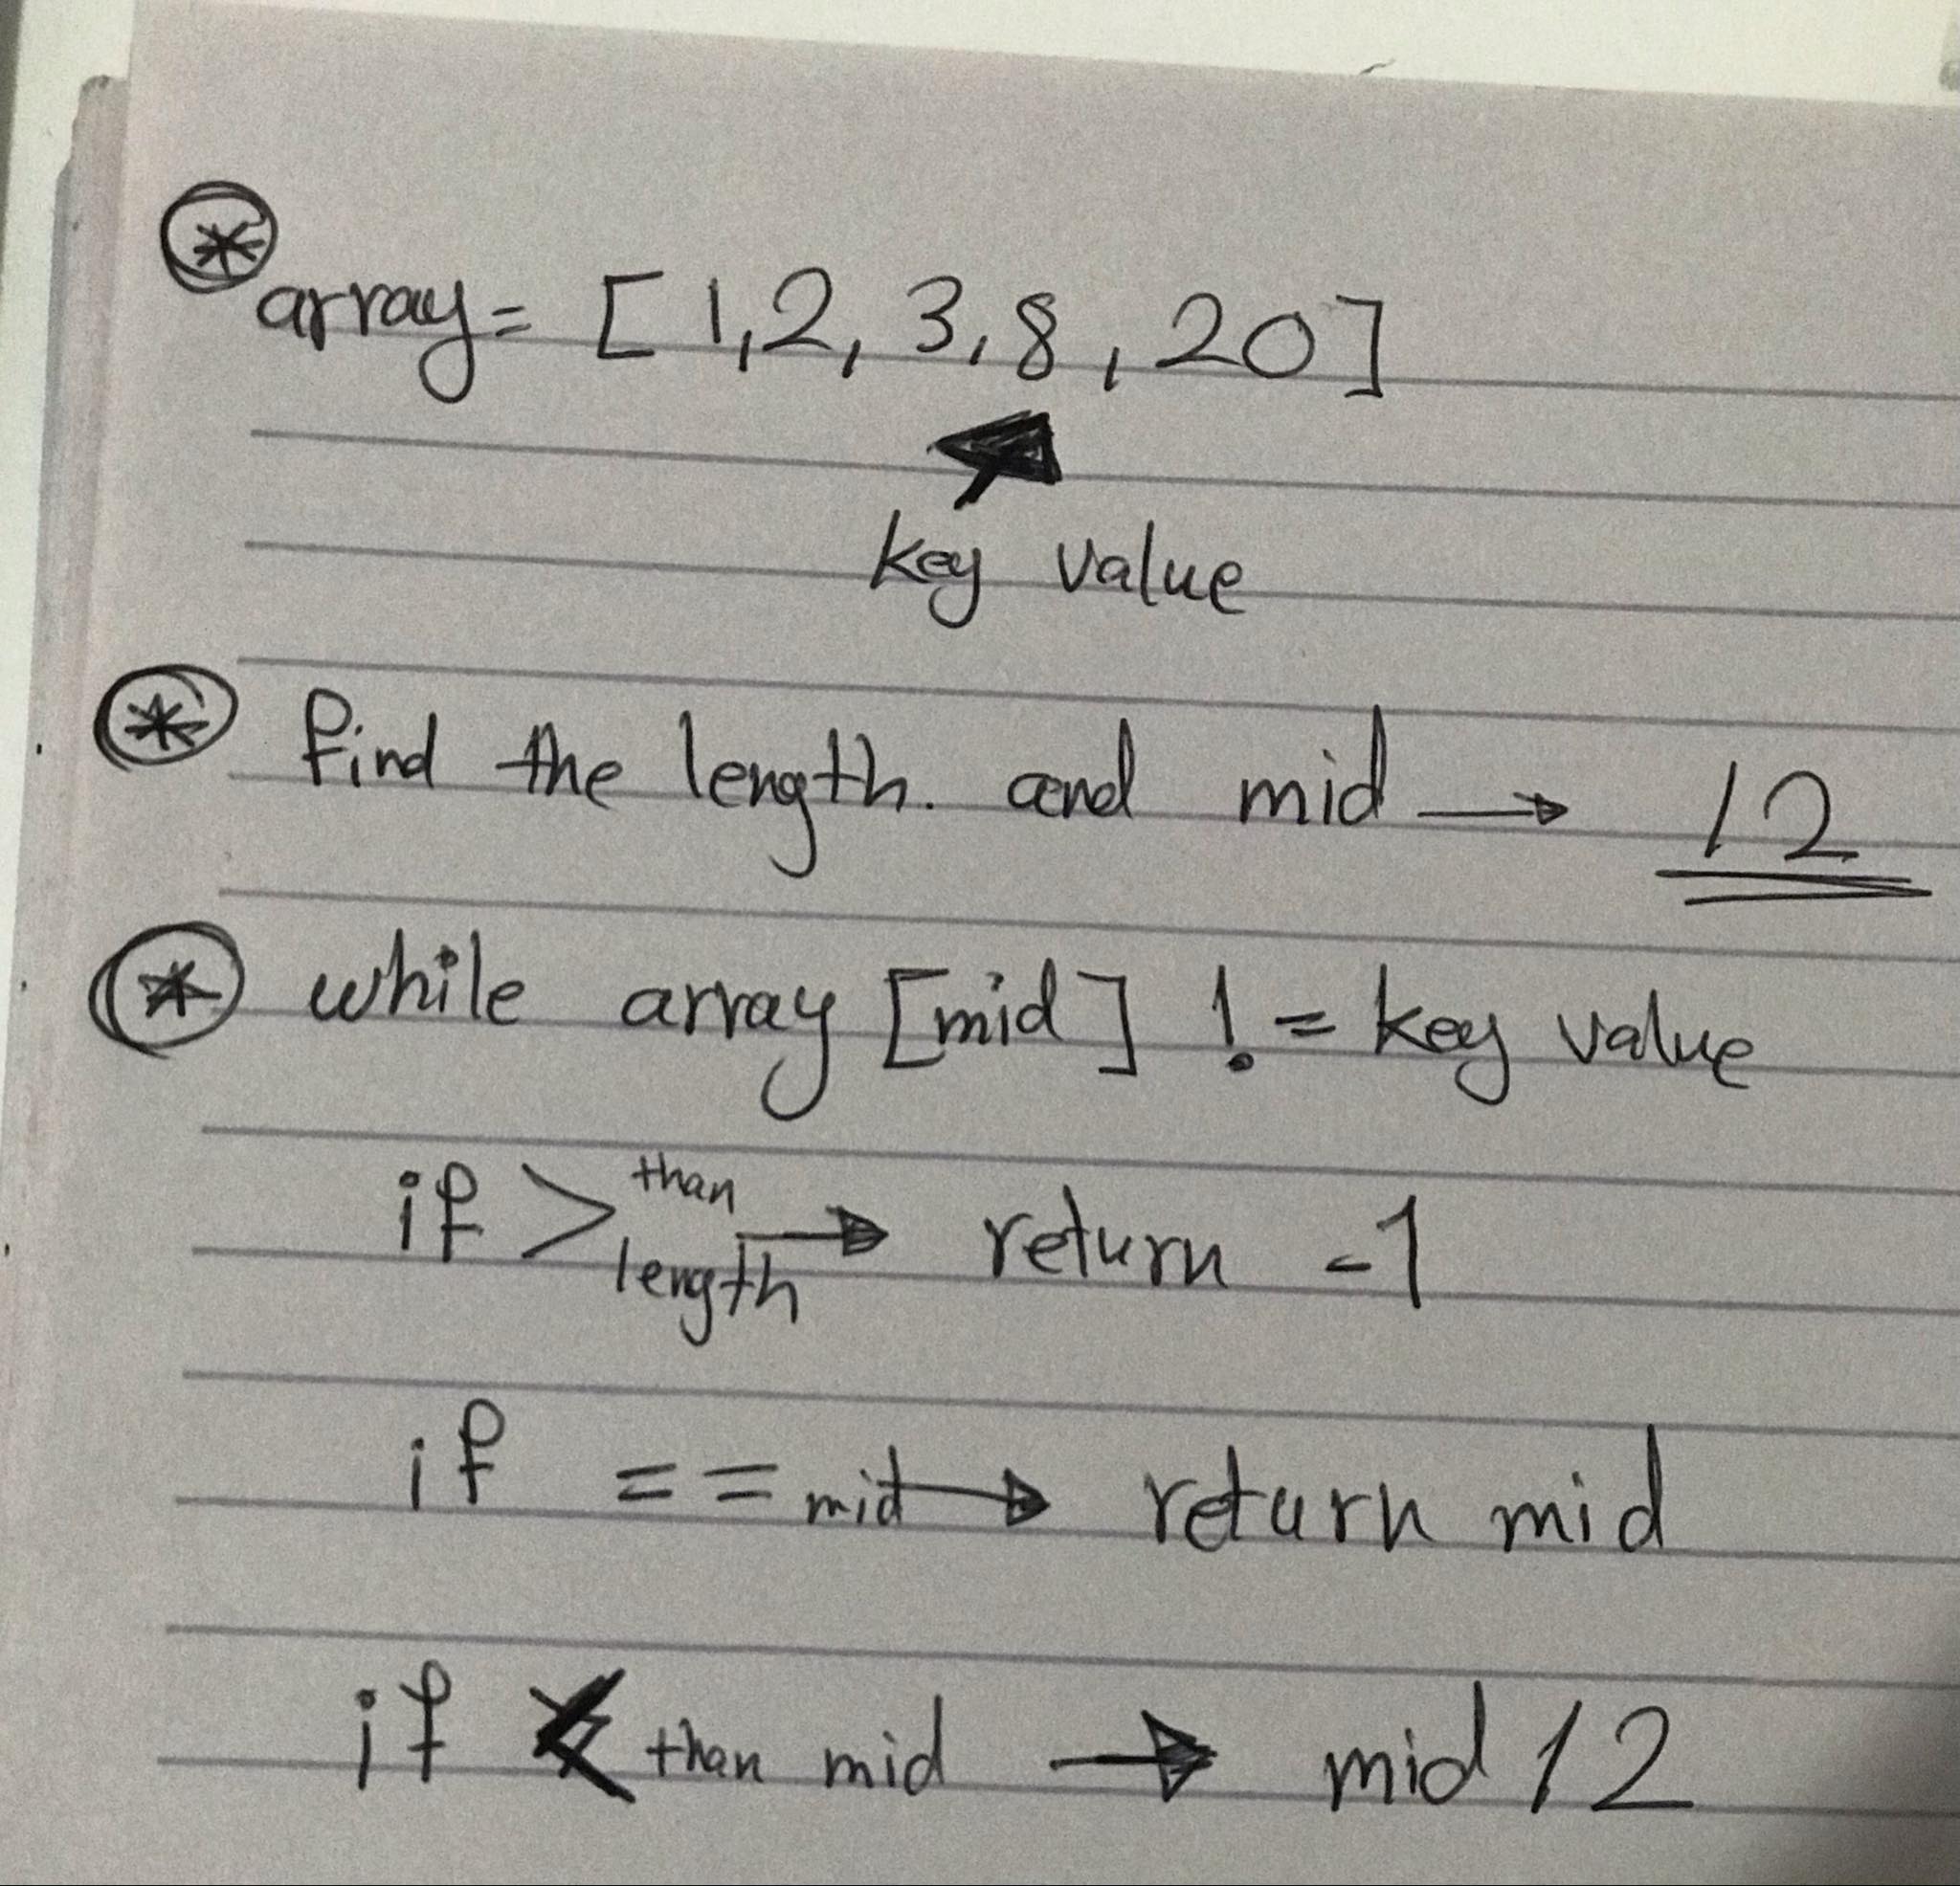 * array = [ 1, 2, 3, 8, 20 ]
key value
* find the length. and mid → /2
* while array [mid] != key value
if > than length → return -1
if == mid → return mid
if < than mid → mid /2